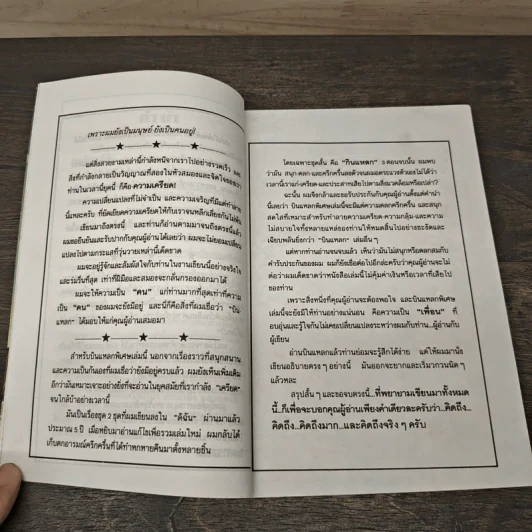 เพราะผมยังเป็นมนุษย์ ยังเป็นคนอยู่!
แต่สิ่งสวยงามเหล่านี้กำลังหนีจากเราไปอย่างรวดเร็ว และ
สิ่งที่กำลังกลายเป็นวิญญาณที่สองในหัวสมองและจิตใจของเรา
ท่านในเวลานี้ยุคนี้ ก็คือ ความเครียด!
ความเปลี่ยนแปลงที่ไม่จำเป็น และความเจริญที่มีแต่ทำลาย
นี่แหละครับ ที่ยัดเยียดความเครียดให้กับเราจนหลีกเลี่ยงกันไม่พ้น
เขียนมาถึงตรงนี้ และท่านก็อ่านตามมาจนถึงตรงนี้แล้ว
ผมขอยืนยันและรับปากกับคุณผู้อ่านได้เลยว่า ผมจะไม่ยอมเปลี่ยน
แปลงไปตามกระแสที่วุ่นวายเหล่านี้เด็ดขาด
ผมจะอยู่รู้จักและสัมผัสใจกับท่านในงานเขียนนี้อย่างจริงใจ
และร่มรื่นที่สุด เท่าที่ฝีมือและสมองจะกลั่นกรองออกมาได้
ผมจะให้ความเป็น "คน" แก่ท่านมากที่สุดเท่าที่ความ
เป็น "คน" ของผมจะยังมีอยู่ และนี่ก็คือสิ่งที่ผมเชื่อว่า "บิน
แหลก" ได้มอบให้แก่คุณผู้อ่านเสมอมา
สำหรับบินแหลกพิเศษเล่มนี้ นอกจากเรื่องราวที่สนุกสนาน
และความเป็นกันเองที่ผมเชื่อว่ายังมีอยู่ครบแล้ว ผมยังเห็นเพิ่มเติม
อีกว่ามันเหมาะเจาะอย่างยิ่งที่จะอ่านในยุคสมัยที่เรากำลัง "เครียด"
จนใกล้บ้าอย่างเวลานี้
มันเป็นเรื่องชุด 2 ชุดที่ผมเขียนลงใน "ดิฉัน" ผ่านมาแล้ว
ประมาณ 5 ปี เมื่อหยิบมาอ่านแก้ไขเพื่อรวมเล่มใหม่ ผมกลับได้
เก็บตกอารมณ์ครึกครื้นที่ได้ทำหกหายคืนมาตั้งหลายชิ้น
โดยเฉพาะชุดสั้น คือ "กินแหลก" 3 ตอนจบนั้น ผมพบ
ว่ามัน สนุก-ตลก และครึกครื้นของตัวจนผมตระแวงตัวเองไม่ได้ว่า
เวลานี้เราแก่เครียด-และประสาทเสียไปตามสิ่งแวดล้อมหรือเปล่า?
ฉะนั้น ผมจึงกล้าและขอรับประกันกับคุณผู้อ่านตั้งแต่คำนำ
นี้เลยว่า บินแหลกพิเศษเล่มนี้จะมีแต่ความตลกครึกครื้น และสนุก
สดใสที่เหมาะสำหรับทำลายความเครียด-ความกลุ้ม-และความ
ไม่สบายใจทั้งหลายแหล่ของท่านให้หมดสิ้นไปอย่างชะงัดและ
เฉียบพลันยิ่งกว่า "บินแหลก" เล่มอื่น ๆ
แต่หากท่านอ่านจนจบแล้ว เห็นว่ามันไม่สนุกหรือตลกสมกับ
คำรับประกันของผม ผมก็ยังเชื่อต่อไปอีกล่ะครับว่าคุณผู้อ่านจะไม่
ต่อว่าผมเด็ดขาดว่าหนังสือเล่มนี้ไม่คุ้มค่าเงินหรือเวลาที่เสียไป
ของท่าน
เพราะสิ่งหนึ่งที่คุณผู้อ่านจะต้องพอใจ และบินแหลกพิเศษ
เล่มนี้จะยังมีให้ท่านอย่างแน่นอน คือความเป็น "เพื่อน" ที่
อบอุ่นและรู้ใจกันไม่เคยเปลี่ยนแปลงระหว่างผมกับท่าน...ผู้อ่านกับ
ผู้เขียน
อ่านบินแหลกแล้วท่านย่อมจะรู้สึกได้ง่าย แต่ให้ผมมานั่ง
เขียนอธิบายตรง ๆ อย่างนี้ มันออกจะยากและเริ่มวกวนนิด ๆ
แล้วหละ
สรุปสั้น ๆ และขอจบตรงนี้...ที่พยายามเขียนมาทั้งหมด
นี้..ก็เพื่อจะบอกคุณผู้อ่านเพียงคำเดียวละครับว่า-คิดถึง...
คิดถึง..คิดถึงมาก...และคิดถึงจริง ๆ ครับ